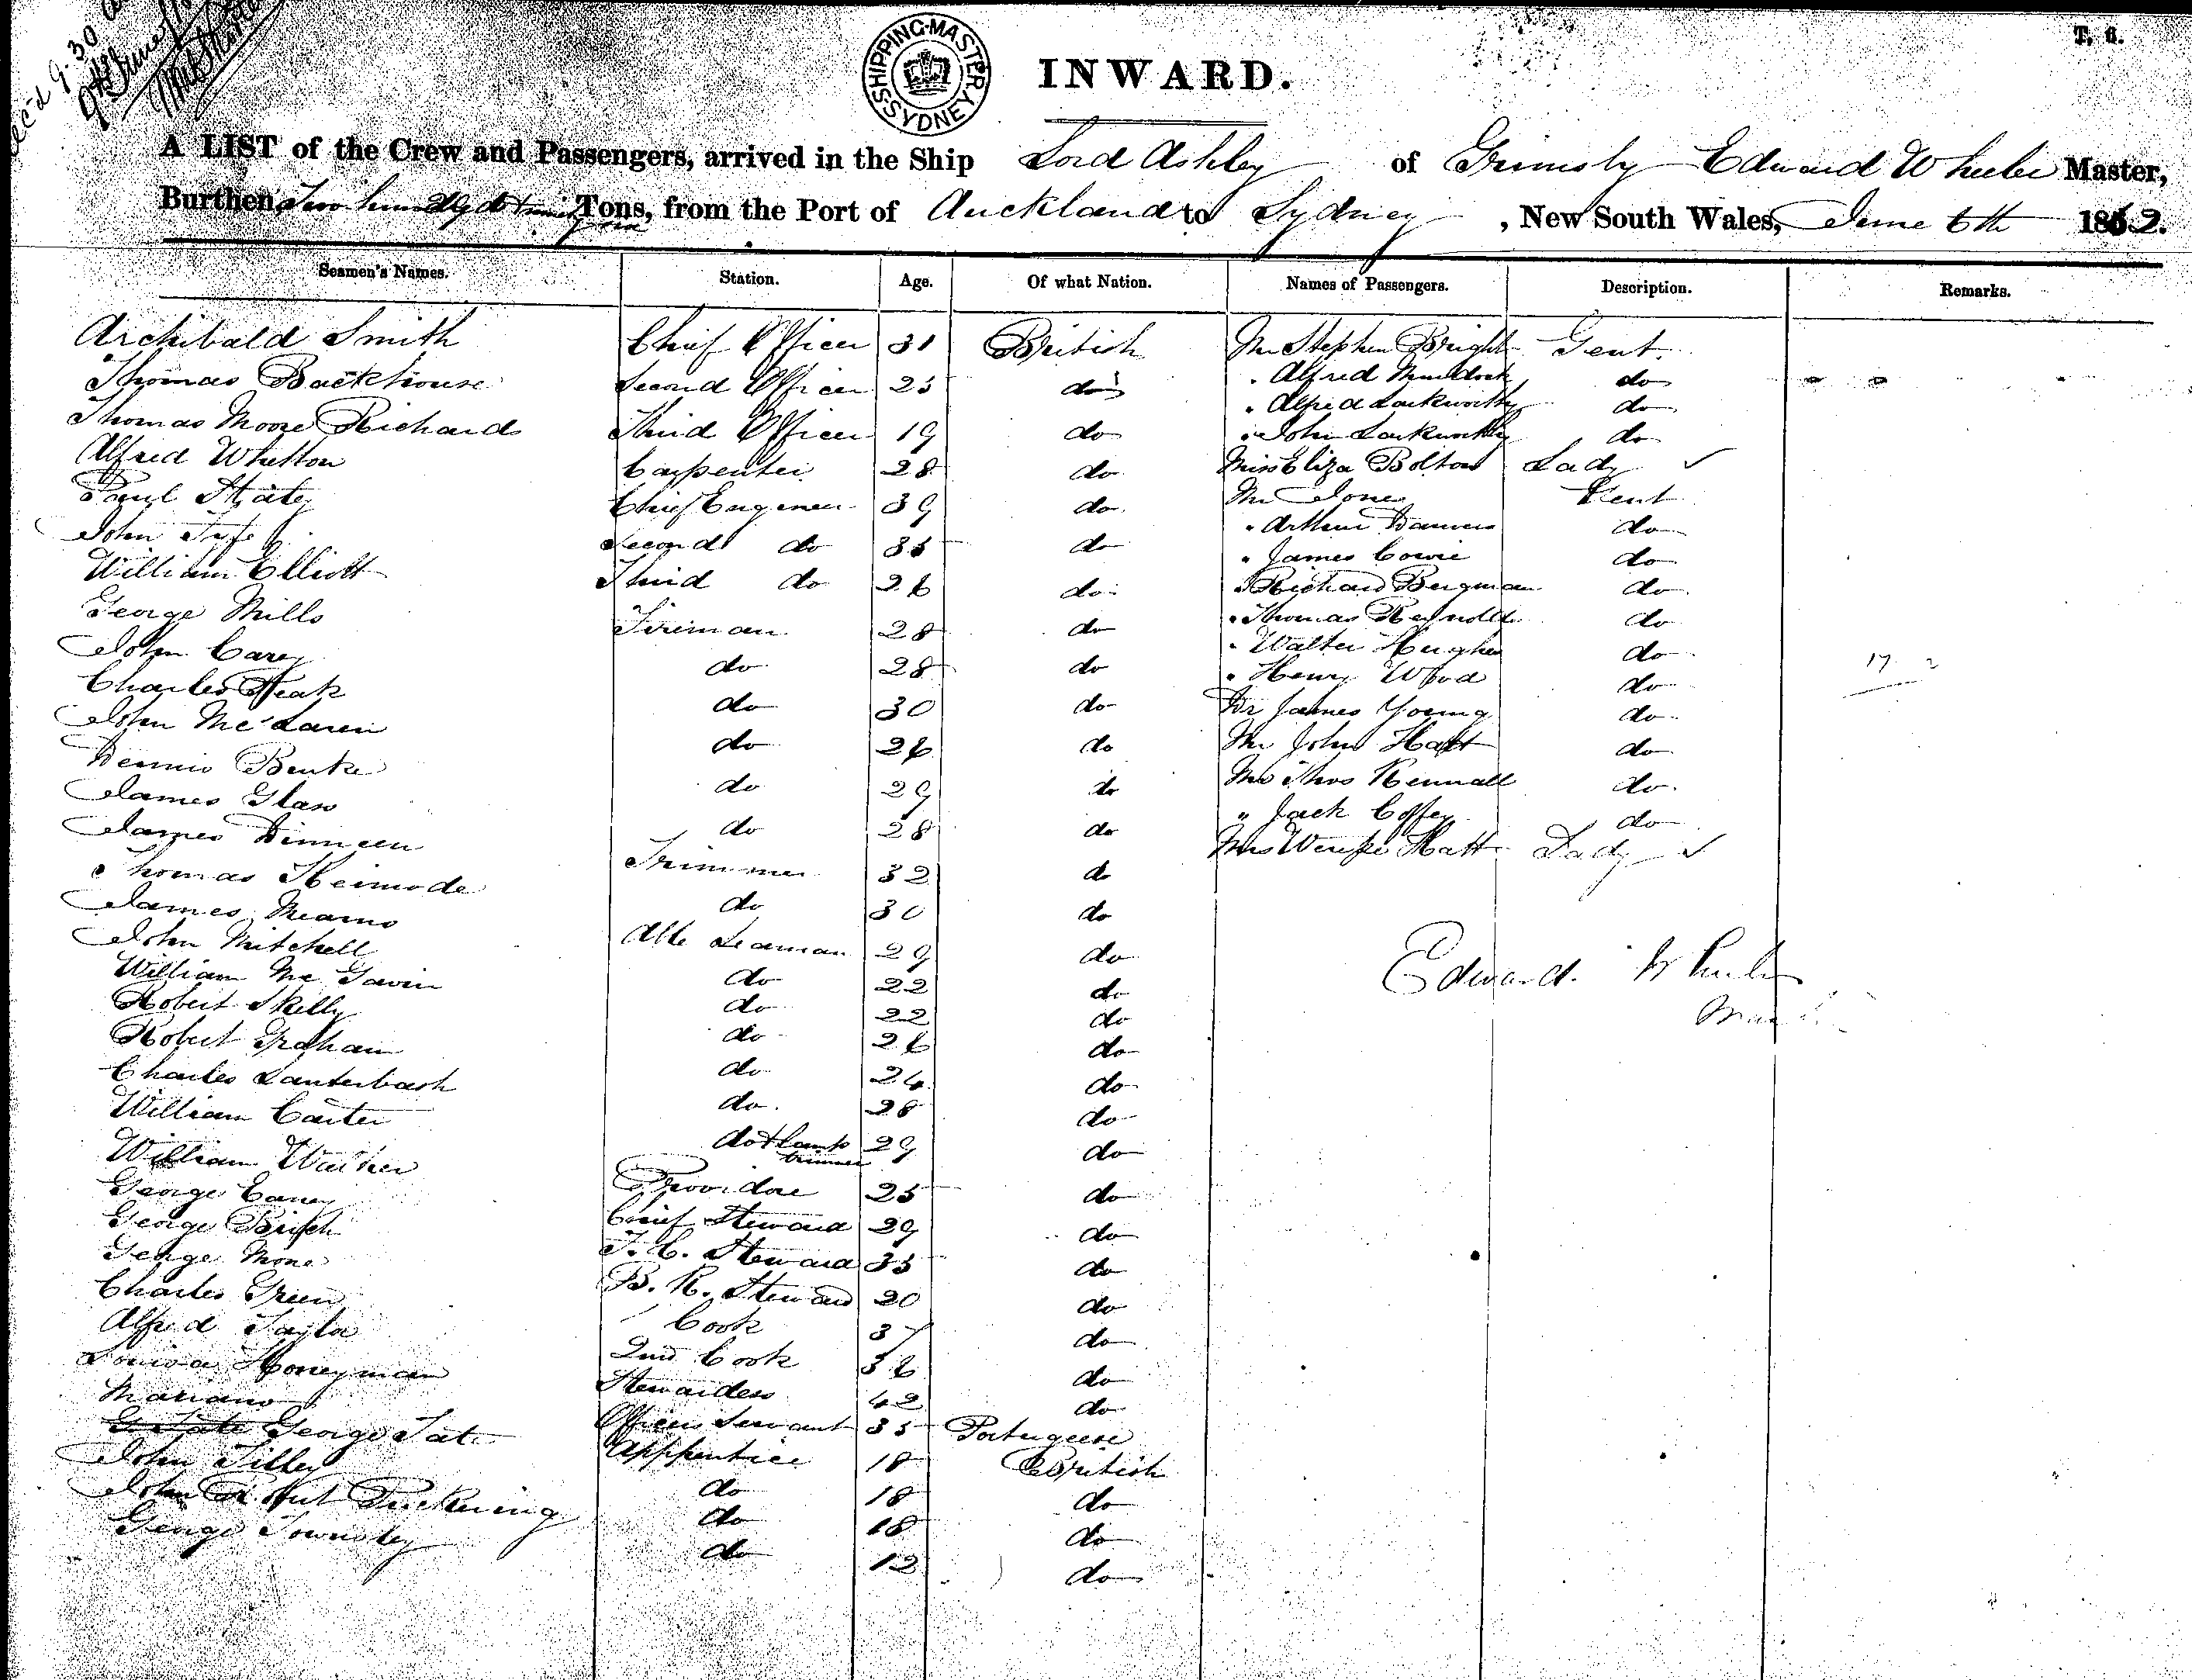 Rec'd 9.30
SHIPPING MASTER SYDNEY
T. 6.
INWARD.
A LIST of the Crew and Passengers, arrived in the Ship Lord Ashley of Grimsby Edward Wheeler Master,
Burthen Two hundred Tons, from the Port of Auckland to Sydney, New South Wales, June 6th 1862.
Seamen's Names. Station. Age. Of what Nation. Names of Passengers. Description. Remarks.
Archibald Smith Chief Officer 31 British Mr Stephen Bright Gent.
Thomas Backhouse Second Officer 25 do " Alfred do
Thomas Moore Richards Third Officer 19 do " Alfred Lackworthy do
" John Lackworthy do
Alfred Whetton Carpenter 28 do Miss Eliza Bolton Lady ✓
Paul Chief Engineer 39 do Mr Jones Gent
John Fyfe Second do 35 do " Arthur do
" James Cowie do
William Elliott Third do 26 do " Richard Bergman do
George Mills Fireman 28 do " Thomas Reynolds do
" Walter Hughes do
John Carey do 28 do " Henry Wood do 17
Charles do 30 do Dr James Young do
John McLaren do 26 do Mr John Hatt do
Dennis Burke do 29 do Mr Thos Kennall do
James Glass do 28 do " Jack Coffey do
James Dinneen Trimmer 32 do Mrs Hatt Lady ✓
Thomas Kermode do 30 do
James Mearns Able Seaman 29 do
John Mitchell do 22 do Edward Wheeler
William Mc Gavin do 22 do
Robert Skelly do 26 do
Robert Graham do 24 do
Charles Lauterbach do 28 do
William Carter do & Lamp trimmer 29 do
William Walker Providore 25 do
George Carey Chief Steward 29 do
George F. C. Steward 35 do
George B. R. Steward 20 do
Charles Green Cook 37 do
Alfred Taylor 2nd Cook 36 do
Louisa Honeyman Stewardess 42 do
Mariano Officers Servant 35 Portuguese
George Tate Apprentice 18 British
John Tilley do 18 do
John Robert Pickering do 18 do
George Townsley do 12 do